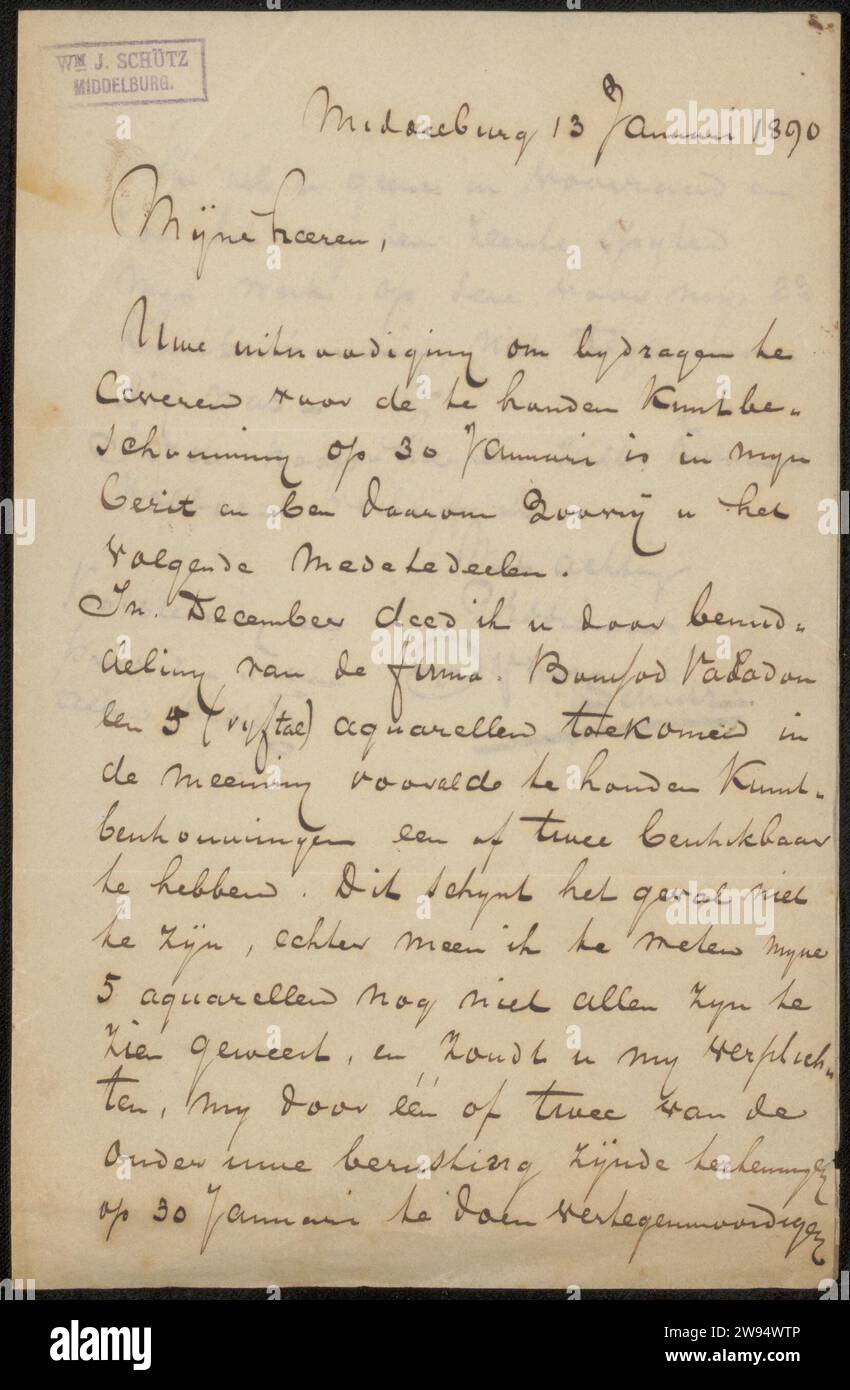 WM J. SCHÜTZ
MIDDELBURG.
Middelburg 13 Januari 1890
Mijne Heeren,
Uwe uitnoodiging om bydragen te
leveren voor de te houden Kunstbe-
schouwing op 30 Januari is in myn
bezit en ben daarom zoovrij u het
volgende mede te deelen.
In December deed ik u door bemid-
deling van de firma Boussod Valadon
een 5 (vyftal) aquarellen toekomen in
de meening voor alde te houden Kunst-
beschouwingen een of twee beschikbaar
te hebben. Dit schynt het geval niet
te zijn, echter meen ik te weten myne
5 aquarellen nog niet allen zyn te
zien geweest, en zoudt u my verplich-
ten, my door één of twee van de
onder uwe berusting zijnde teekeningen
op 30 Januari te doen vertegenwoordigen
alamy
Image ID: 2W94WTP
www.alamy.com